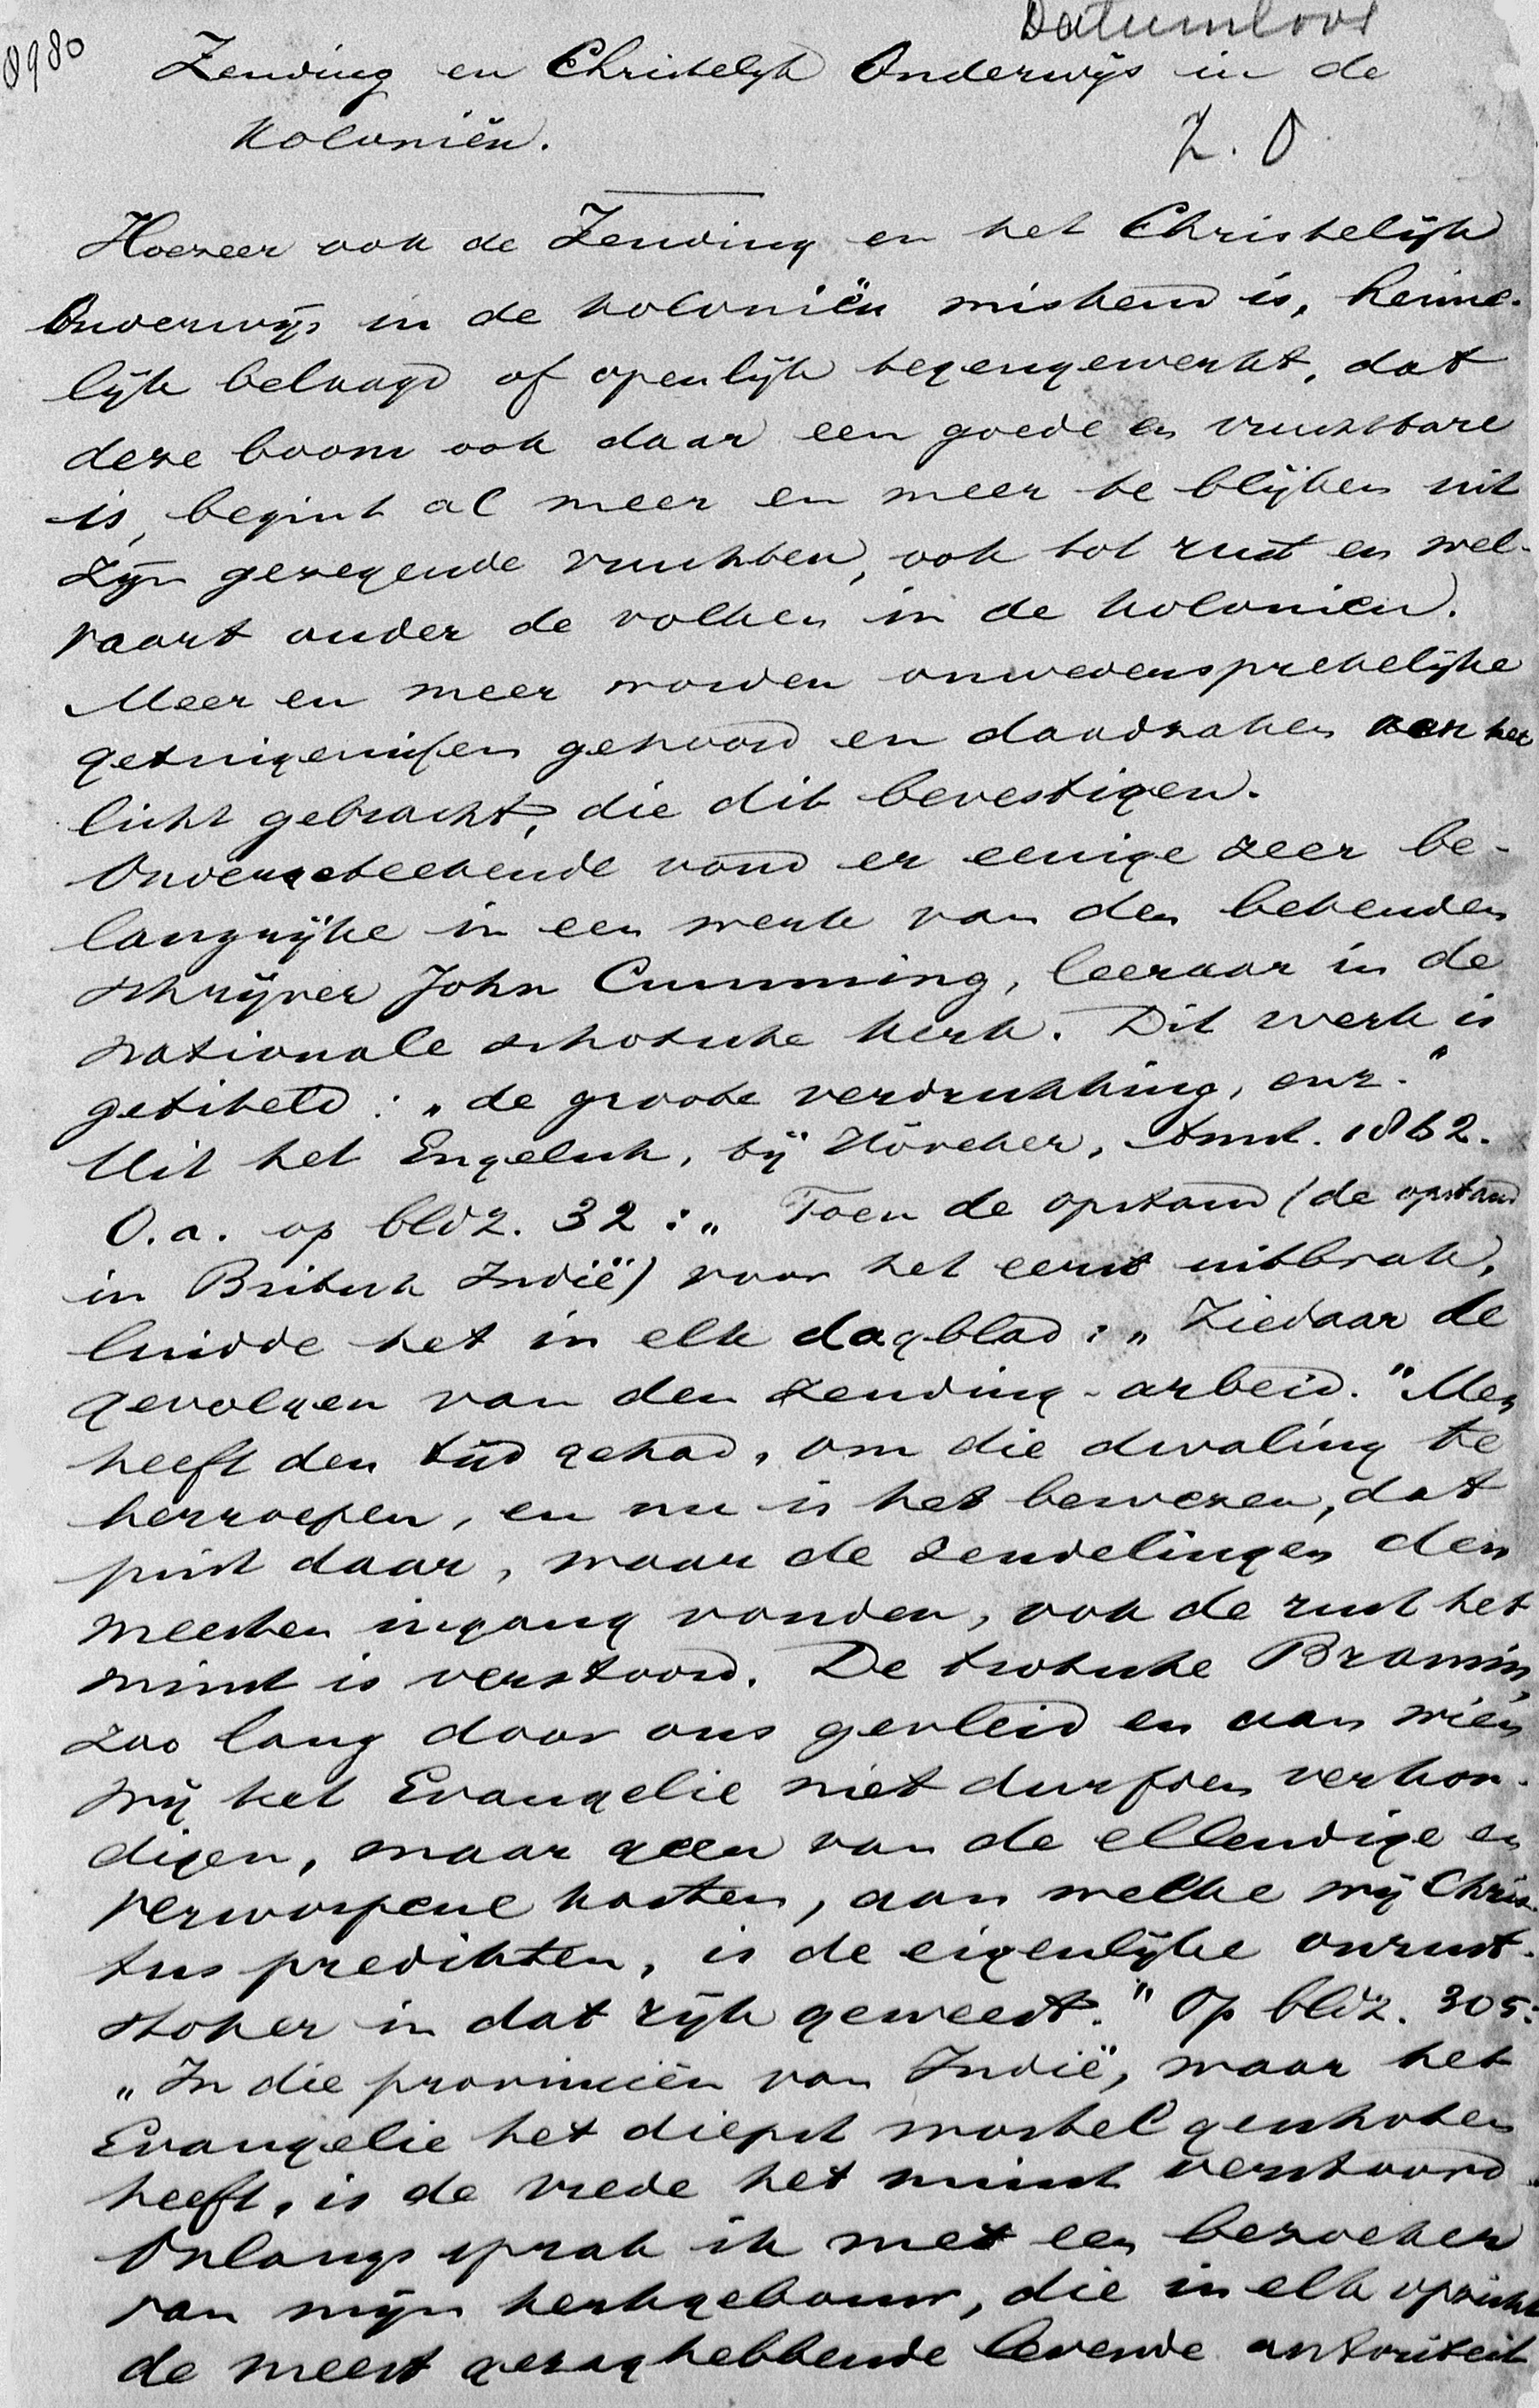 Datumloos
8980
Zending en Christelijk Onderwijs in de
Koloniën.
Z. O
Hoezeer ook de Zending en het Christelijk
Onderwijs in de koloniën miskend is, heime-
lijk belaagd of openlijk tegengewerkt, dat
deze boom ook daar een goede en vruchtbare
is, begint al meer en meer te blijken uit
zijn gezegende vruchten, ook tot rust en wel-
vaart onder de volken in de koloniën.
Meer en meer worden onwedersprekelijke
getuigenissen gehoord en daadzaken aan het
licht gebracht, die dit bevestigen.
Ondergeteekende vond er eenige zeer be-
langrijke in een werk van den bekenden
schrijver John Cumming, leeraar in de
nationale schotsche kerk. Dit werk is
getiteld: „de groote verdrukking, enz."
Uit het Engelsch, bij Höveker, Amst. 1862.
O.a. op bldz. 32: „Toen de opstand (de opstand
in Britsch Indië) voor het eerst uitbrak,
luidde het in elk dagblad: „Ziedaar de
gevolgen van den zending-arbeid." Men
heeft den tijd gehad, om die dwaling te
herroepen, en nu is het bewezen, dat
juist daar, waar de zendelingen den
meesten ingang vonden, ook de rust het
minst is verstoord. De trotsche Bramin,
zoo lang door ons gevleid en aan wien
wij het Evangelie niet durfden verkon-
digen, maar geen van de ellendige en
verworpene kasten, aan welke wij Chris-
tus predikten, is de eigenlijke onrust-
stoker in dat rijk geweest." Op bldz. 305:
„In die provinciën van Indië, waar het
Evangelie het diepst wortel geschoten
heeft, is de vrede het minst verstoord.
Onlangs sprak ik met een bezoeker
van mijn kerkgebouw, die in elk opzicht
de meest gezaghebbende levende autoriteit